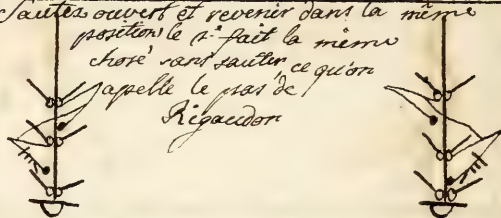 Sautez ouvert et revenir dans la même
position, le 2.e fait la même
chose sans sauter, ce qu'on
apelle le pas de
Rigaudon